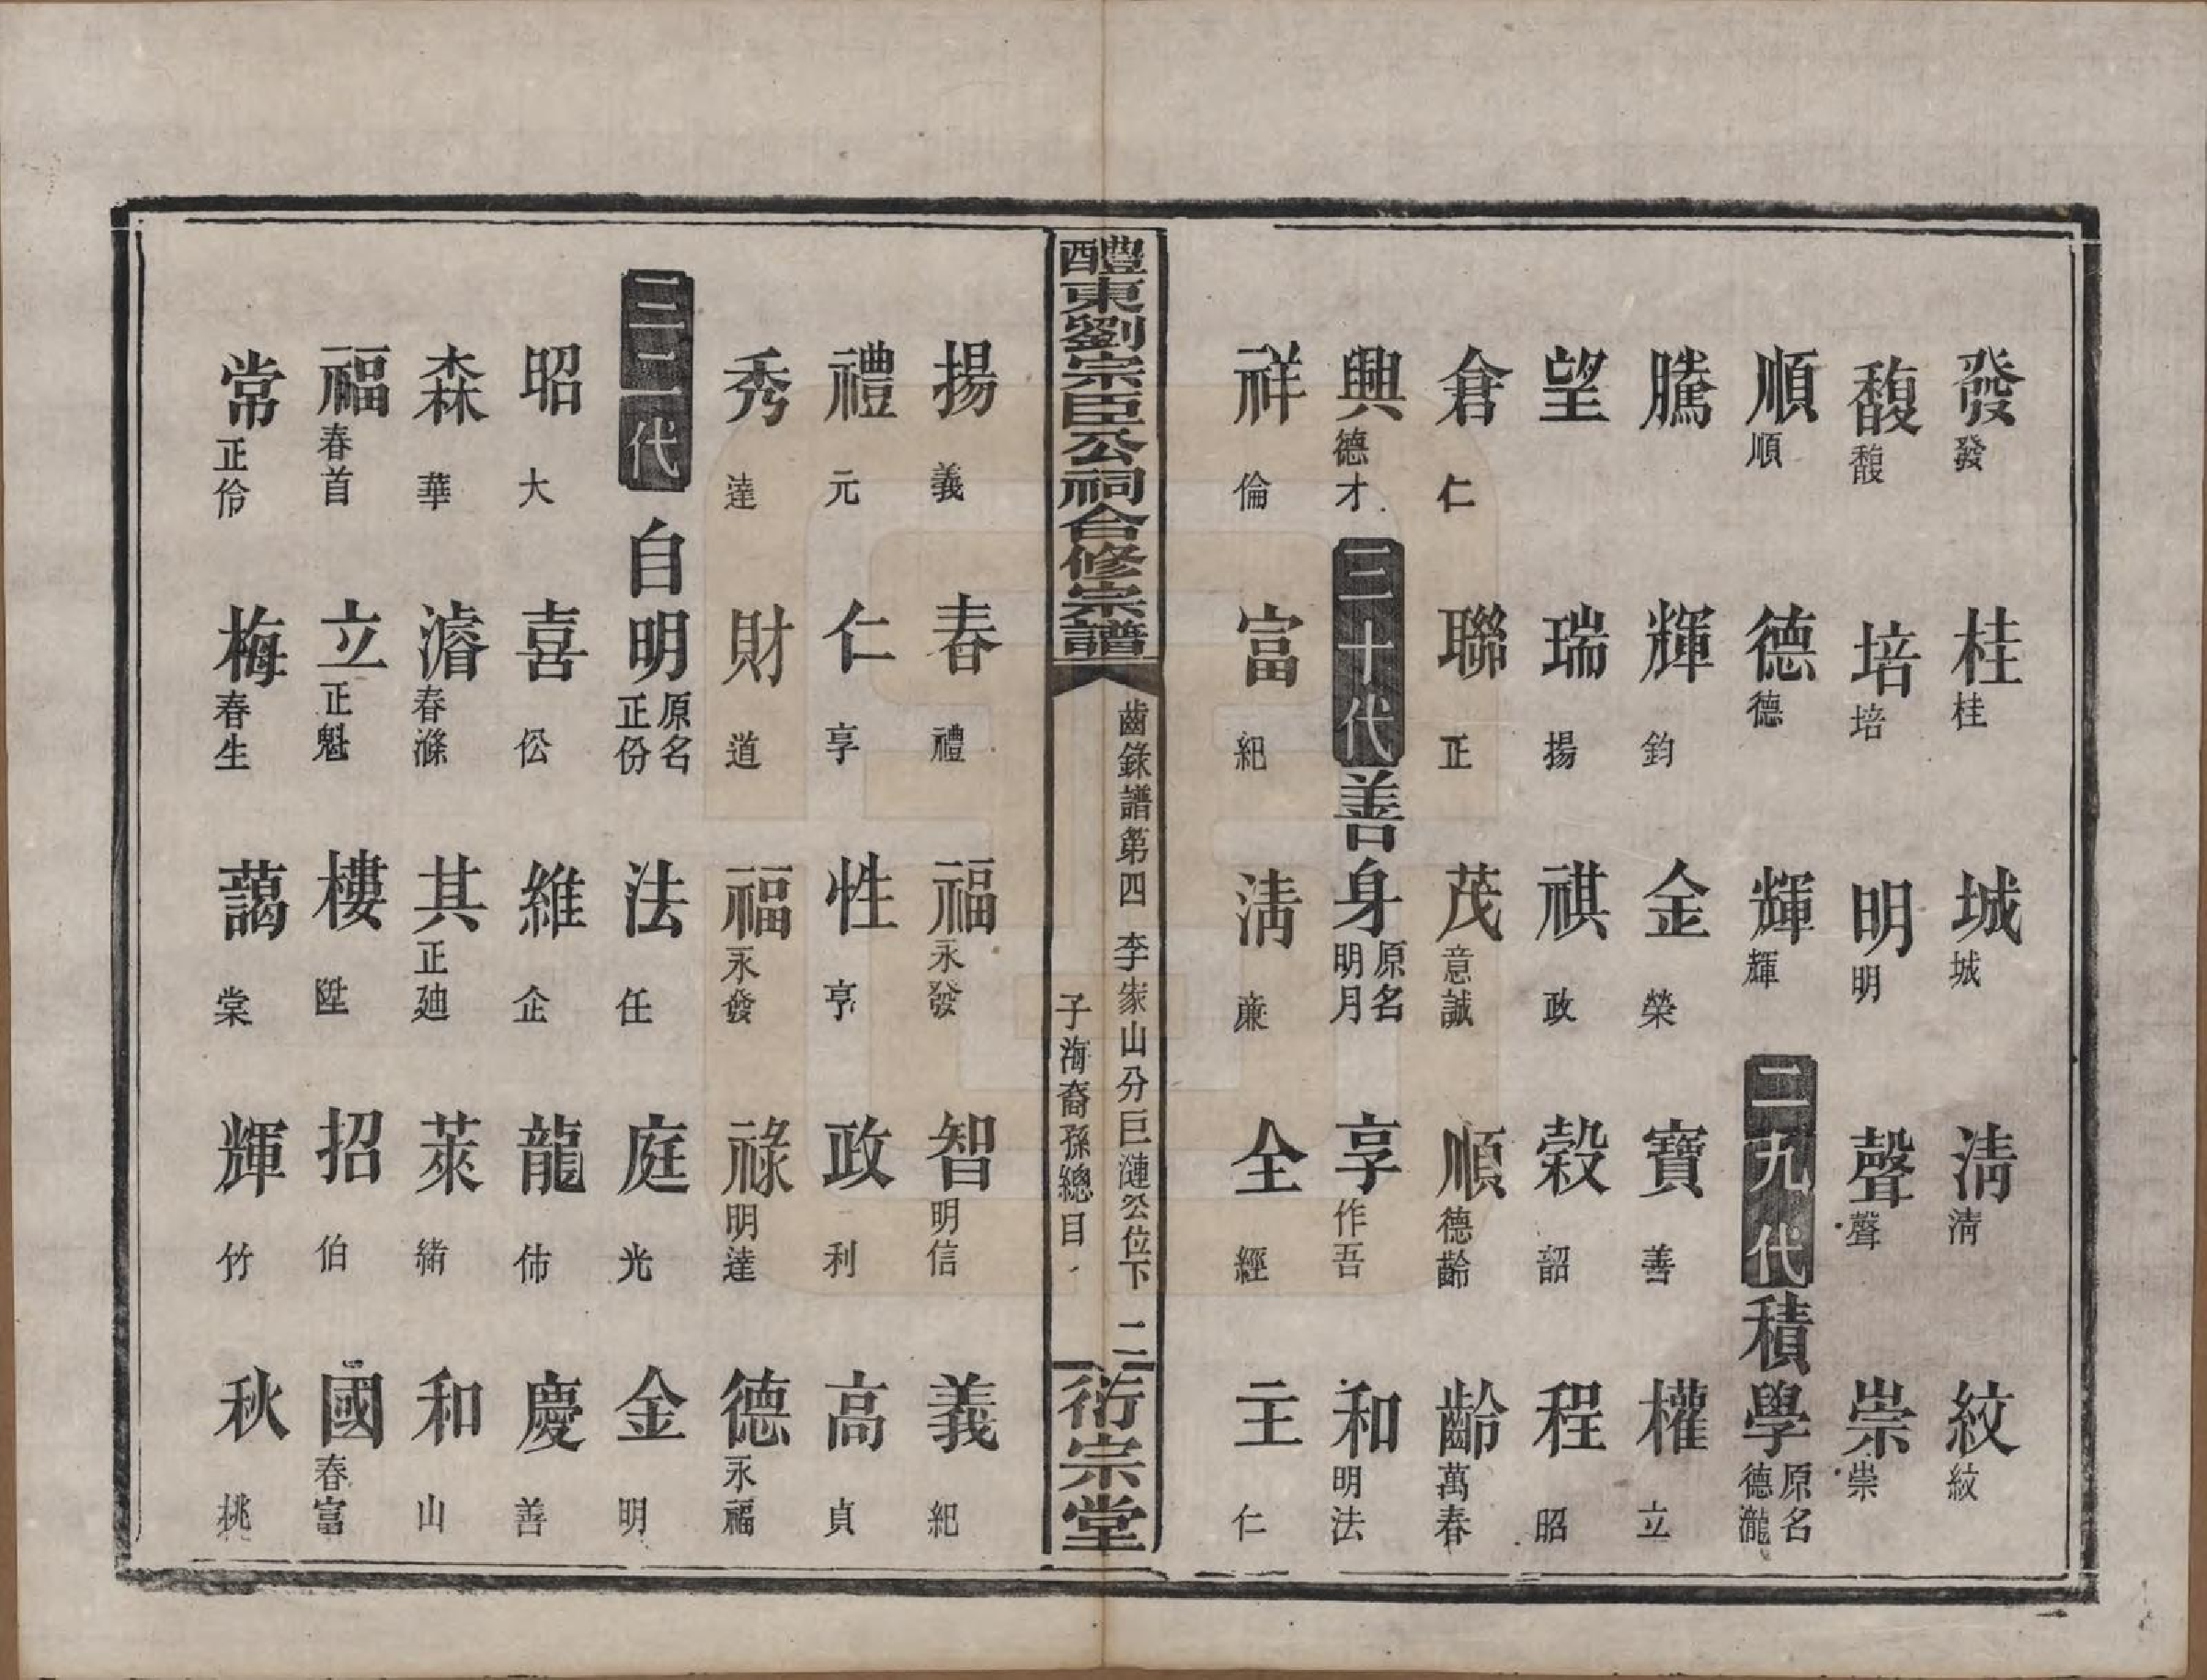 發發 桂桂 城城 淸淸 紋紋
馥馥 培培 明明 聲聲 崇崇
順順 德德 輝輝 二九代 積學原名德瀧
騰 輝鈞 金榮 寶善 權立
望 瑞揚 祺政 榖韶 程昭
倉仁 聯正 茂意誠 順德齡 齡萬春
興德才 三十代 善身原名明月 享作吾 和明法
祥倫 富紀 淸廉 全經 主仁
醴東劉宗臣公祠合修宗譜
齒錄譜第四 李家山分巨漣公位下 二
子海裔孫總目
衍宗堂
揚義 春禮 福永發 智明信 義紀
禮元 仁享 性亨 政利 高貞
秀達 財道 福永發 祿明達 德永福
三二代 自明原名正份 法任 庭光 金明
昭大 喜伀 維企 龍伂 慶善
森華 濬春滌 其正廸 萊緒 和山
福春首 立正魁 樓陞 招伯 國春富
常正伶 梅春生 藹棠 輝竹 秋挑